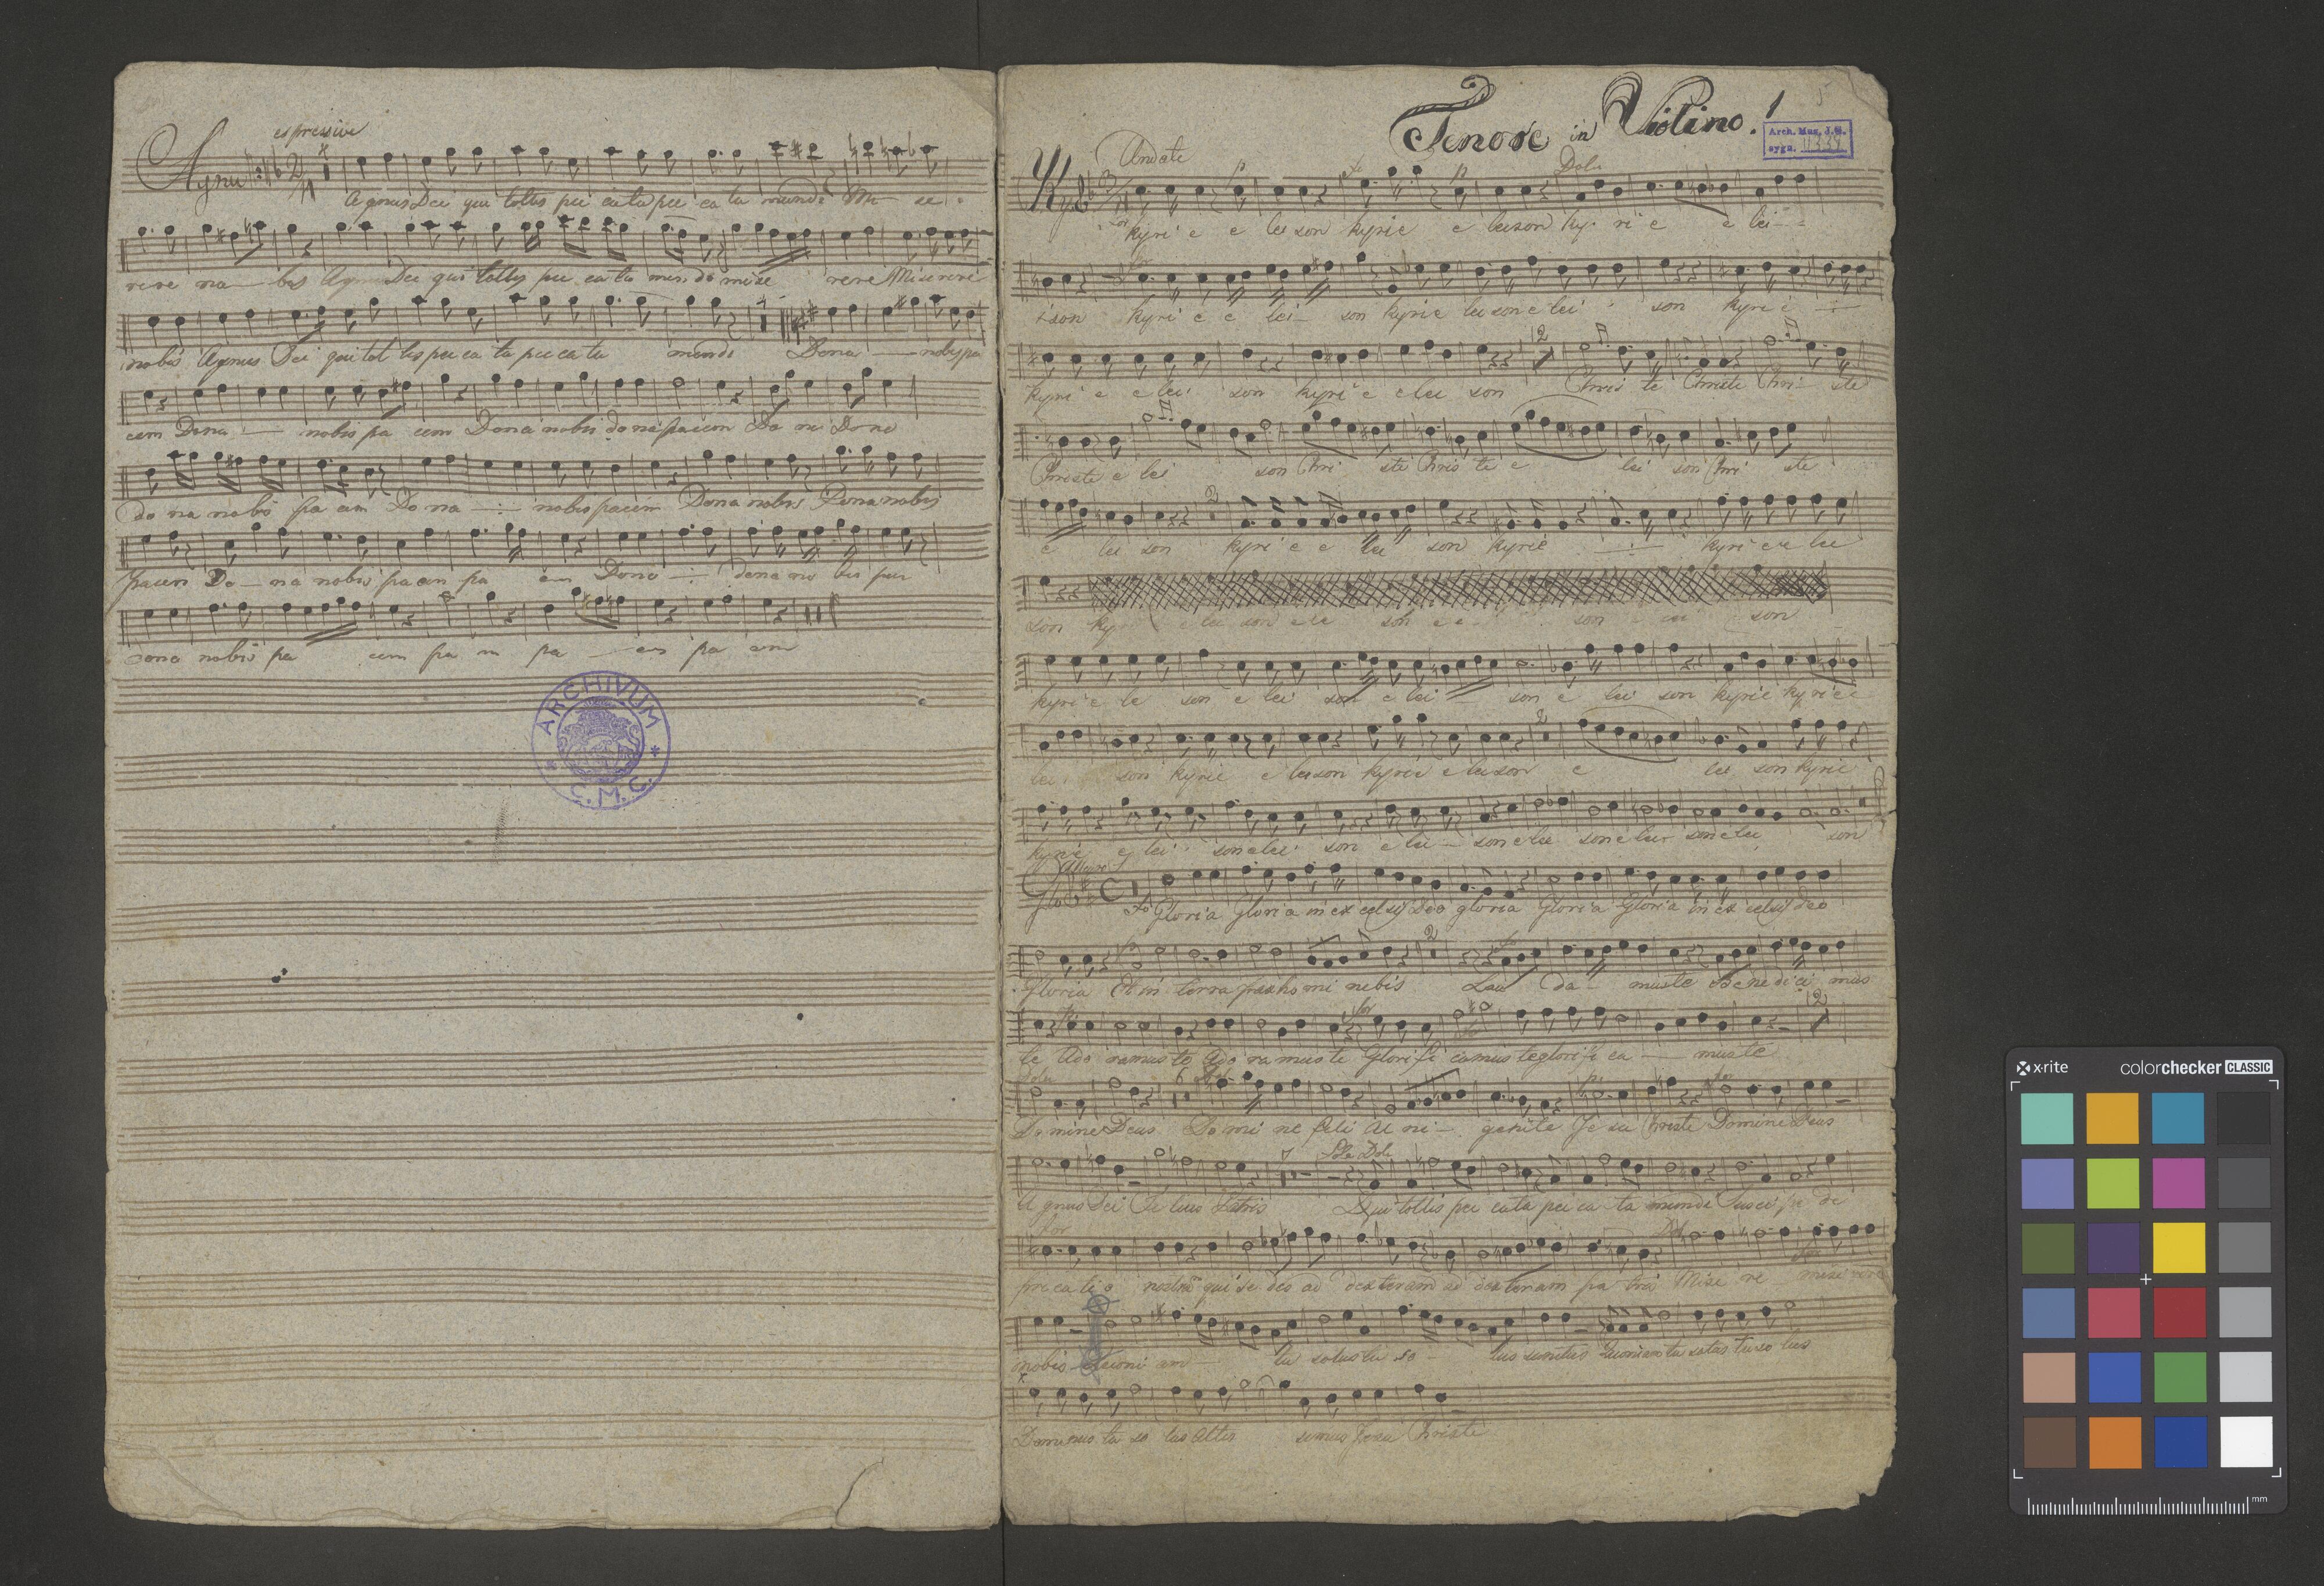 espressive
Agnu
Agnus Dei qui tollis pec cata pec ca ta mundi Mi se
rere no bis Agnus Dei qui tollis pec ca ta mundi mise rere Miserere
nobis Agnus Dei qui tol lis pec ca ta pec ca ta mundi Dona nobis pa
cem Dona nobis pa cem Dona nobis dona pacem Do na Do na
do na nobis pa cem Do na nobis pacem Dona nobis Dona nobis
pacem Do na nobis pacem pa cem Dona dona no bis pa
dona nobis pa cem pa m pa em pa cem
ARCHIVUM
C.M.C.
Tenore in Violino. 1
5
Arch. Muz. J.G.
sygn. II 339
Andate
Dol
Ky
Kyri e e lei son kyrie e leison Ky ri e e lei
i son kyri e e lei son kyrie lei son e lei son kyri e
2
kyri e e lei son kyri e e lei son Chris te Christe Chri ste
Christe e lei son Chri ste Chris te e lei son Chri ste
2
e lei son kyri e e lei son kyrie kyri e e lei
son ky e lei son e le son son son
kyri e le son e lei son e lei son e lei son kyrie kyri e e
2
lei son kyrie e leison kyrie e leison e lei son kyrie
kyrie e lei son e lei son e lei son e lei son e lei son e lei son
Glo C
Gloria Gloria in ex celsis Deo gloria Gloria Gloria in ex celsis deo
2
Gloria Et in terra pax ho mi nibis Lau da muste Bene di ci mus
for
2
te Ado ramus te Ado ra muste Glori fi camus te glori fi ca muste
6
Domine Deus Do mi ne fili u ni genite Je su Christe Domine Deus
7
Solo Dol
A gnus Dei Fi lius Patris Qui tollis pec cata pec ca ta mundi Susci pe de
for
Dol
precati o nostra qui se des ad dexteram ad dexteram pa tris Mise re mise rere
nobis Quoni am tu solus tu so lus sanctus Quoniam tu solus tu so lus
Dominus tu so lus altis simus Jesu Christe
x-rite
colorchecker CLASSIC
mm